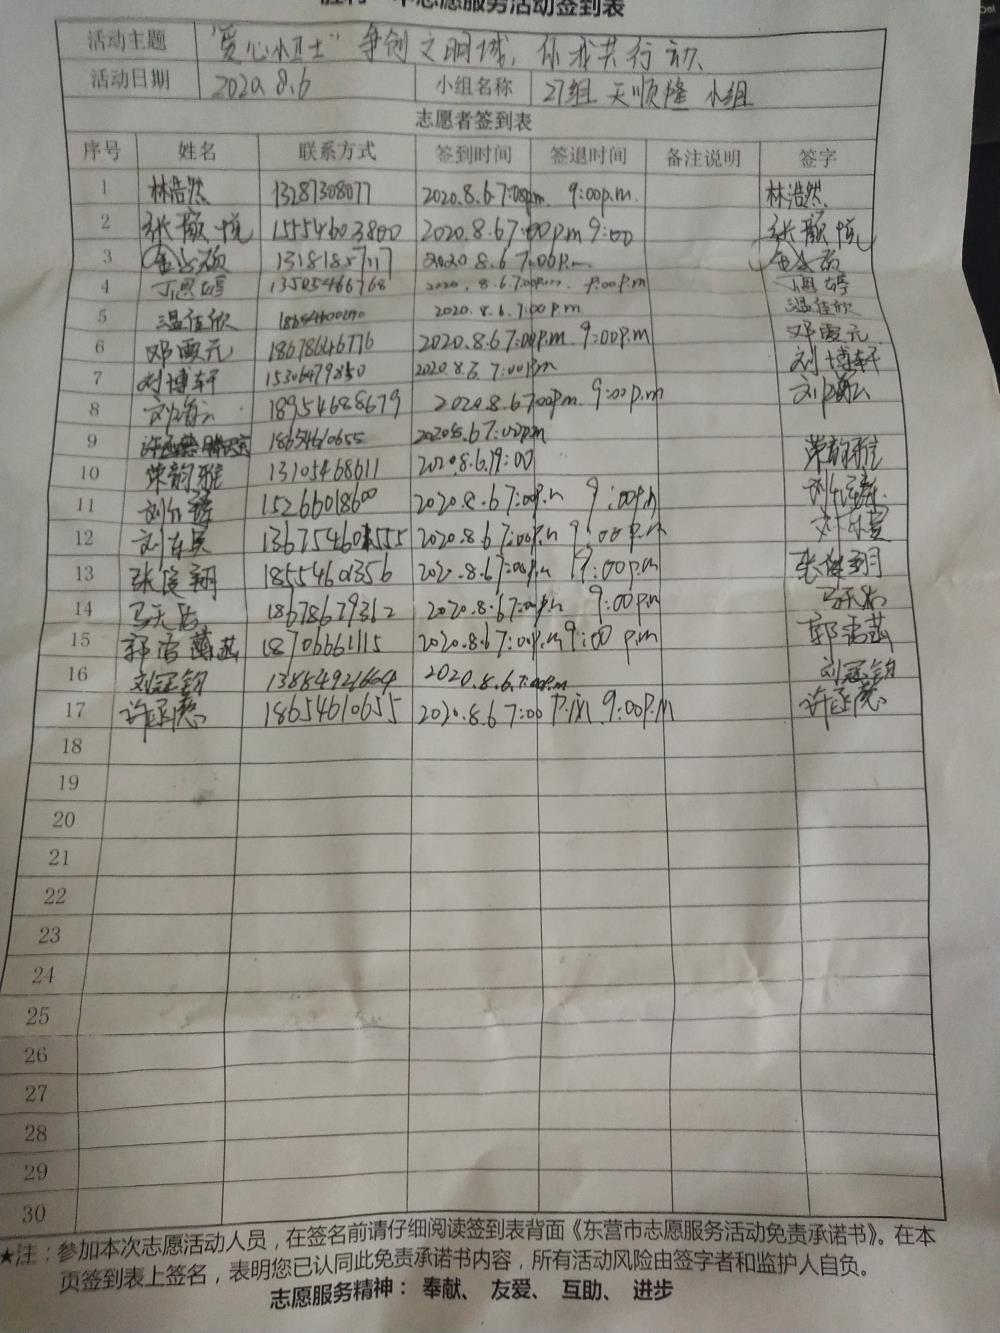 志愿服务活动签到表
活动主题 "爱心小卫士"争创文明城,你我共行动
活动日期 2020.8.6 小组名称 27组 天顺隆 小组
志愿者签到表
序号 姓名 联系方式 签到时间 签退时间 备注说明 签字
1 林浩然 13287308077 2020.8.6 7:00pm 9:00p.m. 林浩然
2 张颢悦 15554603800 2020.8.6 7:00p.m 9:00 张颢悦
3 13181857117 2020.8.6 7:00p.m
4 丁恩婷 13505466768 2020.8.6.7:00p.m. 9:00p.m 丁恩婷
5 温佳欣 2020.8.6.7:00pm 温佳欣
6 邓雯元 18678646776 2020.8.6 7:00p.m 9:00p.m 邓雯元
7 刘博轩 15306479850 2020.8.6.7:00pm 刘博轩
8 18954688679 2020.8.6 7:00pm. 9:00p.m
9 18654610655 2020.8.6 7:00pm
10 荣韵雅 13105468611 2020.8.6.19:00 荣韵雅
11 15266018600 2020.8.6 7:00p.m 9:00p.m
12 2020.8.6 7:00p.m 9:00p.m
13 张健翔 18554601356 2020.8.6 7:00p.m 9:00p.m 张健翔
14 18678679362 2020.8.6 7:00p.m 9:00p.m
15 18706661115 2020.8.6 7:00p.m 9:00 p.m
16 刘冠钧 2020.8.6.7:00p.m 刘冠钧
17 18654610655 2020.8.6 7:00 p.m 9:00p.m
18
19
20
21
22
23
24
25
26
27
28
29
30
★注:参加本次志愿活动人员,在签名前请仔细阅读签到表背面《东营市志愿服务活动免责承诺书》。在本
页签到表上签名,表明您已认同此免责承诺书内容,所有活动风险由签字者和监护人自负。
志愿服务精神:奉献、友爱、互助、进步